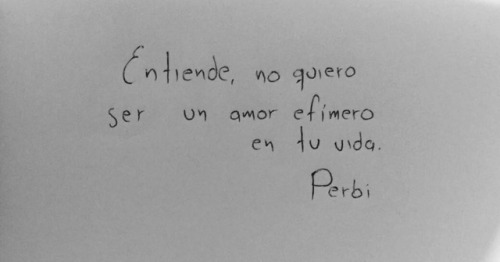 Entiende, no quiero
ser un amor efímero
en tu vida.
Perbi